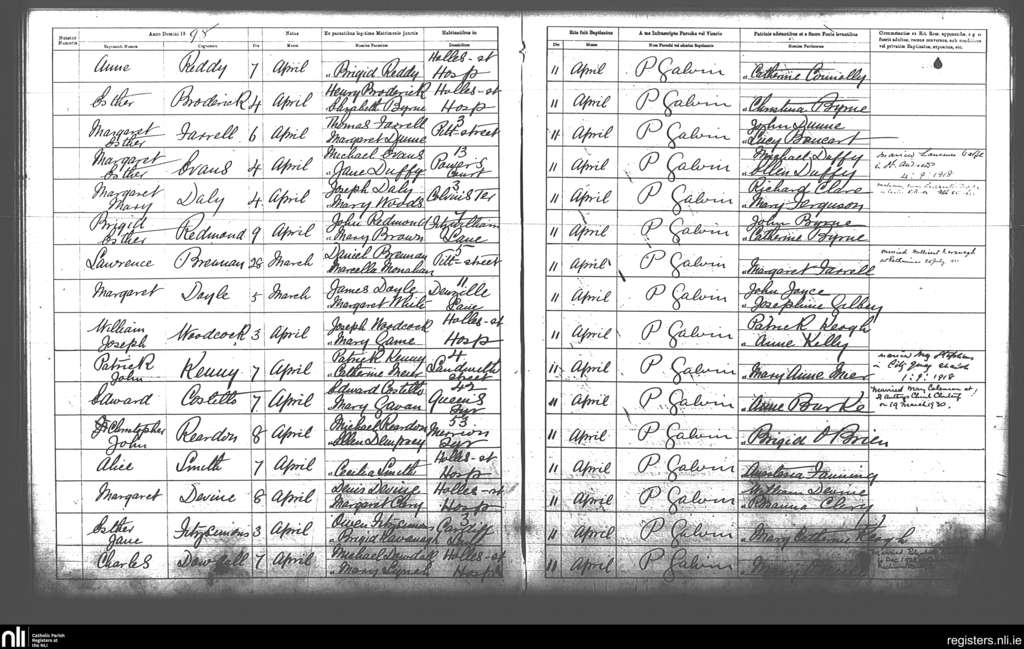 Anno Domini 18 98
Numerus Numerus
Baptizati Nomen
Cognomen
Natus
Die
Mense
Ex parentibus legitimo Matrimonio junctis
Nomina Parentum
Habitantibus in
Domicilium
Anne Reddy 7 April „ Brigid Reddy Holles-st Hosp
Esther Broderick 4 April Henry Broderick „ Elizabeth Byrne Holles-st Hosp
Margaret Esther Farrell 6 April Thomas Farrell „ Margaret Dunne 3 Pitt-street
Margaret Esther Evans 4 April Michael Evans „ Jane Duffy 13 Powers Court
Margaret Mary Daly 4 April Joseph Daly „ Mary Woods 3 Ter
Brigid Esther Redmond 9 April John Redmond „ Mary Brown 7 Fitzwilliam Lane
Lawrence Brennan 28 March Daniel Brennan Marcella Monahan 5 Pitt-street
Margaret Doyle 5 March James Doyle „ Margaret White 11 Denville Lane
William Joseph Woodcock 3 April Joseph Woodcock „ Mary Game Holles-st Hosp
Patrick John Kenny 7 April Patrick Kenny „ Catherine 4 Sandwith street
Edward Costello 7 April Edward Costello Mary Gavan 42 Queens Sqr
Christopher John Reardon 8 April Michael Reardon „ Ellen Dempsey 53 Merrion Sqr
Alice Smith 7 April „ Cecilia Smith Holles-st Hosp
Margaret Devine 8 April Denis Devine „ Margaret Clery Holles-st Hosp
Esther Jane Fitzsimons 3 April Owen Fitzsimons „ Brigid Kavanagh 3
Charles Dowdall 7 April Michael Dowdall „ Mary Lynch Holles-st Hosp
Rite fuit Baptizatus
Die
Mense
A me Infrascripto Parocho vel Vicario
Nom Parochi vel alterius Baptizantis
Patrinis adstantibus et a Sacro Fonte levantibus
Nomina Patrinorum
11 April P Galvin „ Catherine Connolly
11 April P Galvin „ Christina Byrne
11 April P Galvin John Dunne „ Lucy
11 April P Galvin Michael Duffy „ Ellen Duffy married Laurence in St Andrews 4: 9: 1918
11 April P Galvin Richard Clare „ Mary Ferguson
11 April P Galvin John Byrne „ Catherine Byrne
11 April P Galvin „ Margaret Farrell married Kavanagh at Rathmines July
11 April P Galvin John Joyce „ Josephine Gilbey
11 April P Galvin Patrick Keogh „ Anne Kelly
11 April P Galvin „ Mary Anne married Mgt Stephens in City Quay Church 1: 9: 1918
11 April P Galvin „ Anne Burke married Mary Coleman at on 19 March 1930.
11 April P Galvin „ Brigid O Brien
11 April P Galvin „ Anastasia Fanning
11 April P Galvin William Devine „ Clery
11 April P Galvin „ Mary Catherine Keogh
11 April P Galvin „ Mary
nli
Catholic Parish
Registers at
the NLI
registers.nli.ie